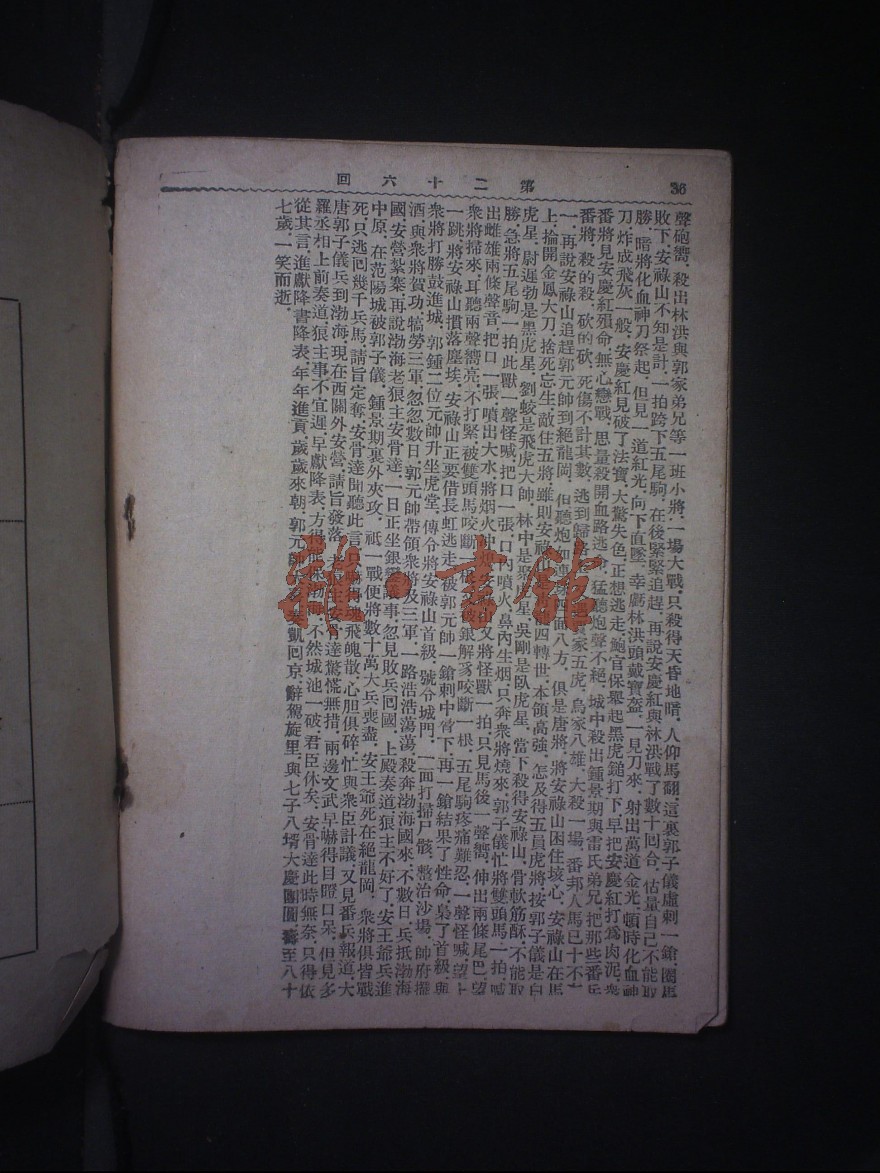 第二十六回
36
聲砲嚮．殺出林洪與郭家弟兄等一班小將．一場大戰．只殺得天昏地暗．人仰馬翻．這裏郭子儀虛刺一鎗．圈馬
敗下．安祿山不知是計．一拍跨下五尾駒．在後緊緊追趕．再說安慶紅與林洪戰了數十回合．估量自己不能取
勝．暗將化血神刀祭起．但見一道紅光．向下直墜．幸虧林洪頭戴寶盔．一見刀來．射出萬道金光．頓時化血神
刀．炸成飛灰一般．安慶紅見破了法寶．大驚失色．正想逃走．鮑官保舉起黑虎鎚打下．早把安慶紅打爲肉泥．衆
番將見安慶紅殞命．無心戀戰．思量殺開血路逃命．猛聽炮聲不絕．城中殺出鍾景期與雷氏弟兄．把那些番兵
番將．殺的殺．砍的砍．死傷不計其數．逃到歸 家五虎．烏家八雄．大殺一場．番邦人馬已十不存
一．再說安祿山追趕郭元帥到絕龍岡．但聽炮 四面八方．俱是唐將．將安祿山困住垓心．安祿山在馬
上．掄開金鳳大刀．捨死忘生．敵住五將．雖則安祿 四轉世．本領高強．怎及得五員虎將．按郭子儀是白
虎星．尉遲勃是黑虎星．劉蛟是飛虎大師．林中是 星．吳剛是臥虎星．當下殺得安祿山．骨軟筋酥．不能取
勝．急將五尾駒一拍．此獸一聲怪喊．把口一張．口內噴火．鼻內生烟．只奔衆將燒來．郭子儀忙將雙頭馬一拍．喊
出雌雄兩條聲音．把口一張．噴出大水．將烟火 又將怪獸一拍．只見馬後一聲嚮．伸出兩條尾巴．望
衆將掃來．耳聽兩聲嚮亮．不打緊．被雙頭馬咬斷一 被銀解豸咬斷一根．五尾駒疼痛難忍．一聲怪喊．望上
一跳．將安祿山慣落塵埃．安祿山正要借長虹逃走．被郭元帥一鎗刺中脅下．再一鎗結果了性命．梟了首級．與
衆將打勝鼓進城．郭鍾二位元帥升坐虎堂．傳令將安祿山首級．號令城門．一面打掃尸骸．整治沙場．帥府擺
酒．與衆將賀功．犒勞三軍．忽忽數日．郭元帥帶領衆將及三軍．一路浩浩蕩蕩．殺奔渤海國來．不數日．兵抵渤海
國．安營紮寨．再說渤海老狼主安骨達．一日正坐銀 議事．忽見敗兵回國．上殿奏道．狼主不好了．安王爺兵進
中原．在范陽城．被郭子儀．鍾景期裏外夾攻．祇一戰便將數十萬大兵喪盡．安王爺死在絕龍岡．衆將俱皆戰
死．只逃回幾千兵馬．請旨定奪．安骨達聞聽此言． 飛魄散．心胆俱碎．忙與衆臣計議．又見番兵報道．大
唐郭子儀兵到渤海．現在西關外安營．請旨發落．老狼主安骨達驚慌無措．兩邊文武早嚇得目瞪口呆．但見多
羅丞相上前奏道．狼主事不宜遲．早獻降表．方得 保渤海．不然城池一破．君臣休矣．安骨達此時無奈．只得依
從其言．進獻降書降表．年年進貢．歲歲來朝．郭元帥 奏凱回京．辭駕旋里．與七子八壻大慶團圓．壽至八十
七歲．一笑而逝．
雜·書館